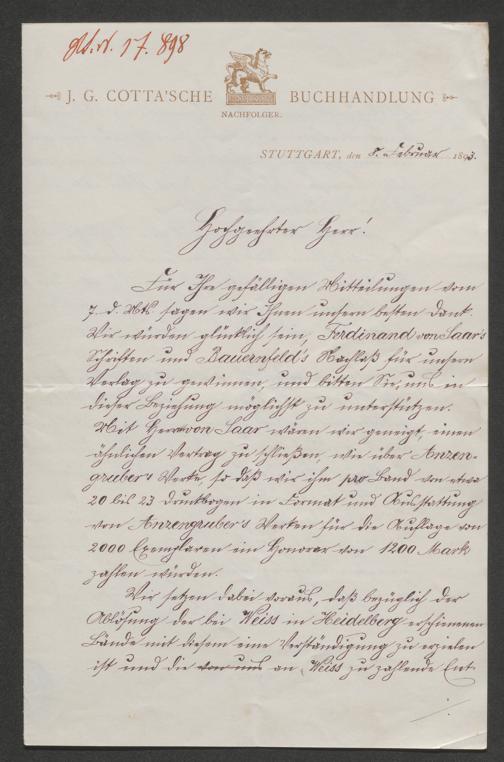 17. 898
J. G. COTTA'SCHE BUCHHANDLUNG
NACHFOLGER.
STUTTGART, den 8. Februar 1893.
Hochgeehrter Herr!
Für Ihre gefälligen Mitteilungen vom
7. d. Mts. sagen wir Ihnen unsern besten Dank.
Wir würden glücklich sein, Ferdinand von Saar's
Schriften und Bauernfeld's Nachlaß für unsern
Verlag zu gewinnen, und bitten Sie, uns in
dieser Beziehung möglichst zu unterstützen.
Mit Herrn von Saar wären wir geneigt, einen
ähnlichen Vertrag zu schließen, wie über Anzen-
gruber's Werke, so daß wir ihm pro Band von etwa
20 bis 23 Druckbogen in Format und Ausstattung
von Anzengruber's Werken für die Auflage von
2000 Exemplaren ein Honorar von 1200 Mark
zahlen würden.
Wir setzen dabei voraus, daß bezüglich der
Ablösung der bei Weiss in Heidelberg erschienenen
Bände mit diesem eine Verständigung zu erzielen
ist und die von uns an Weiss zu zahlende Ent